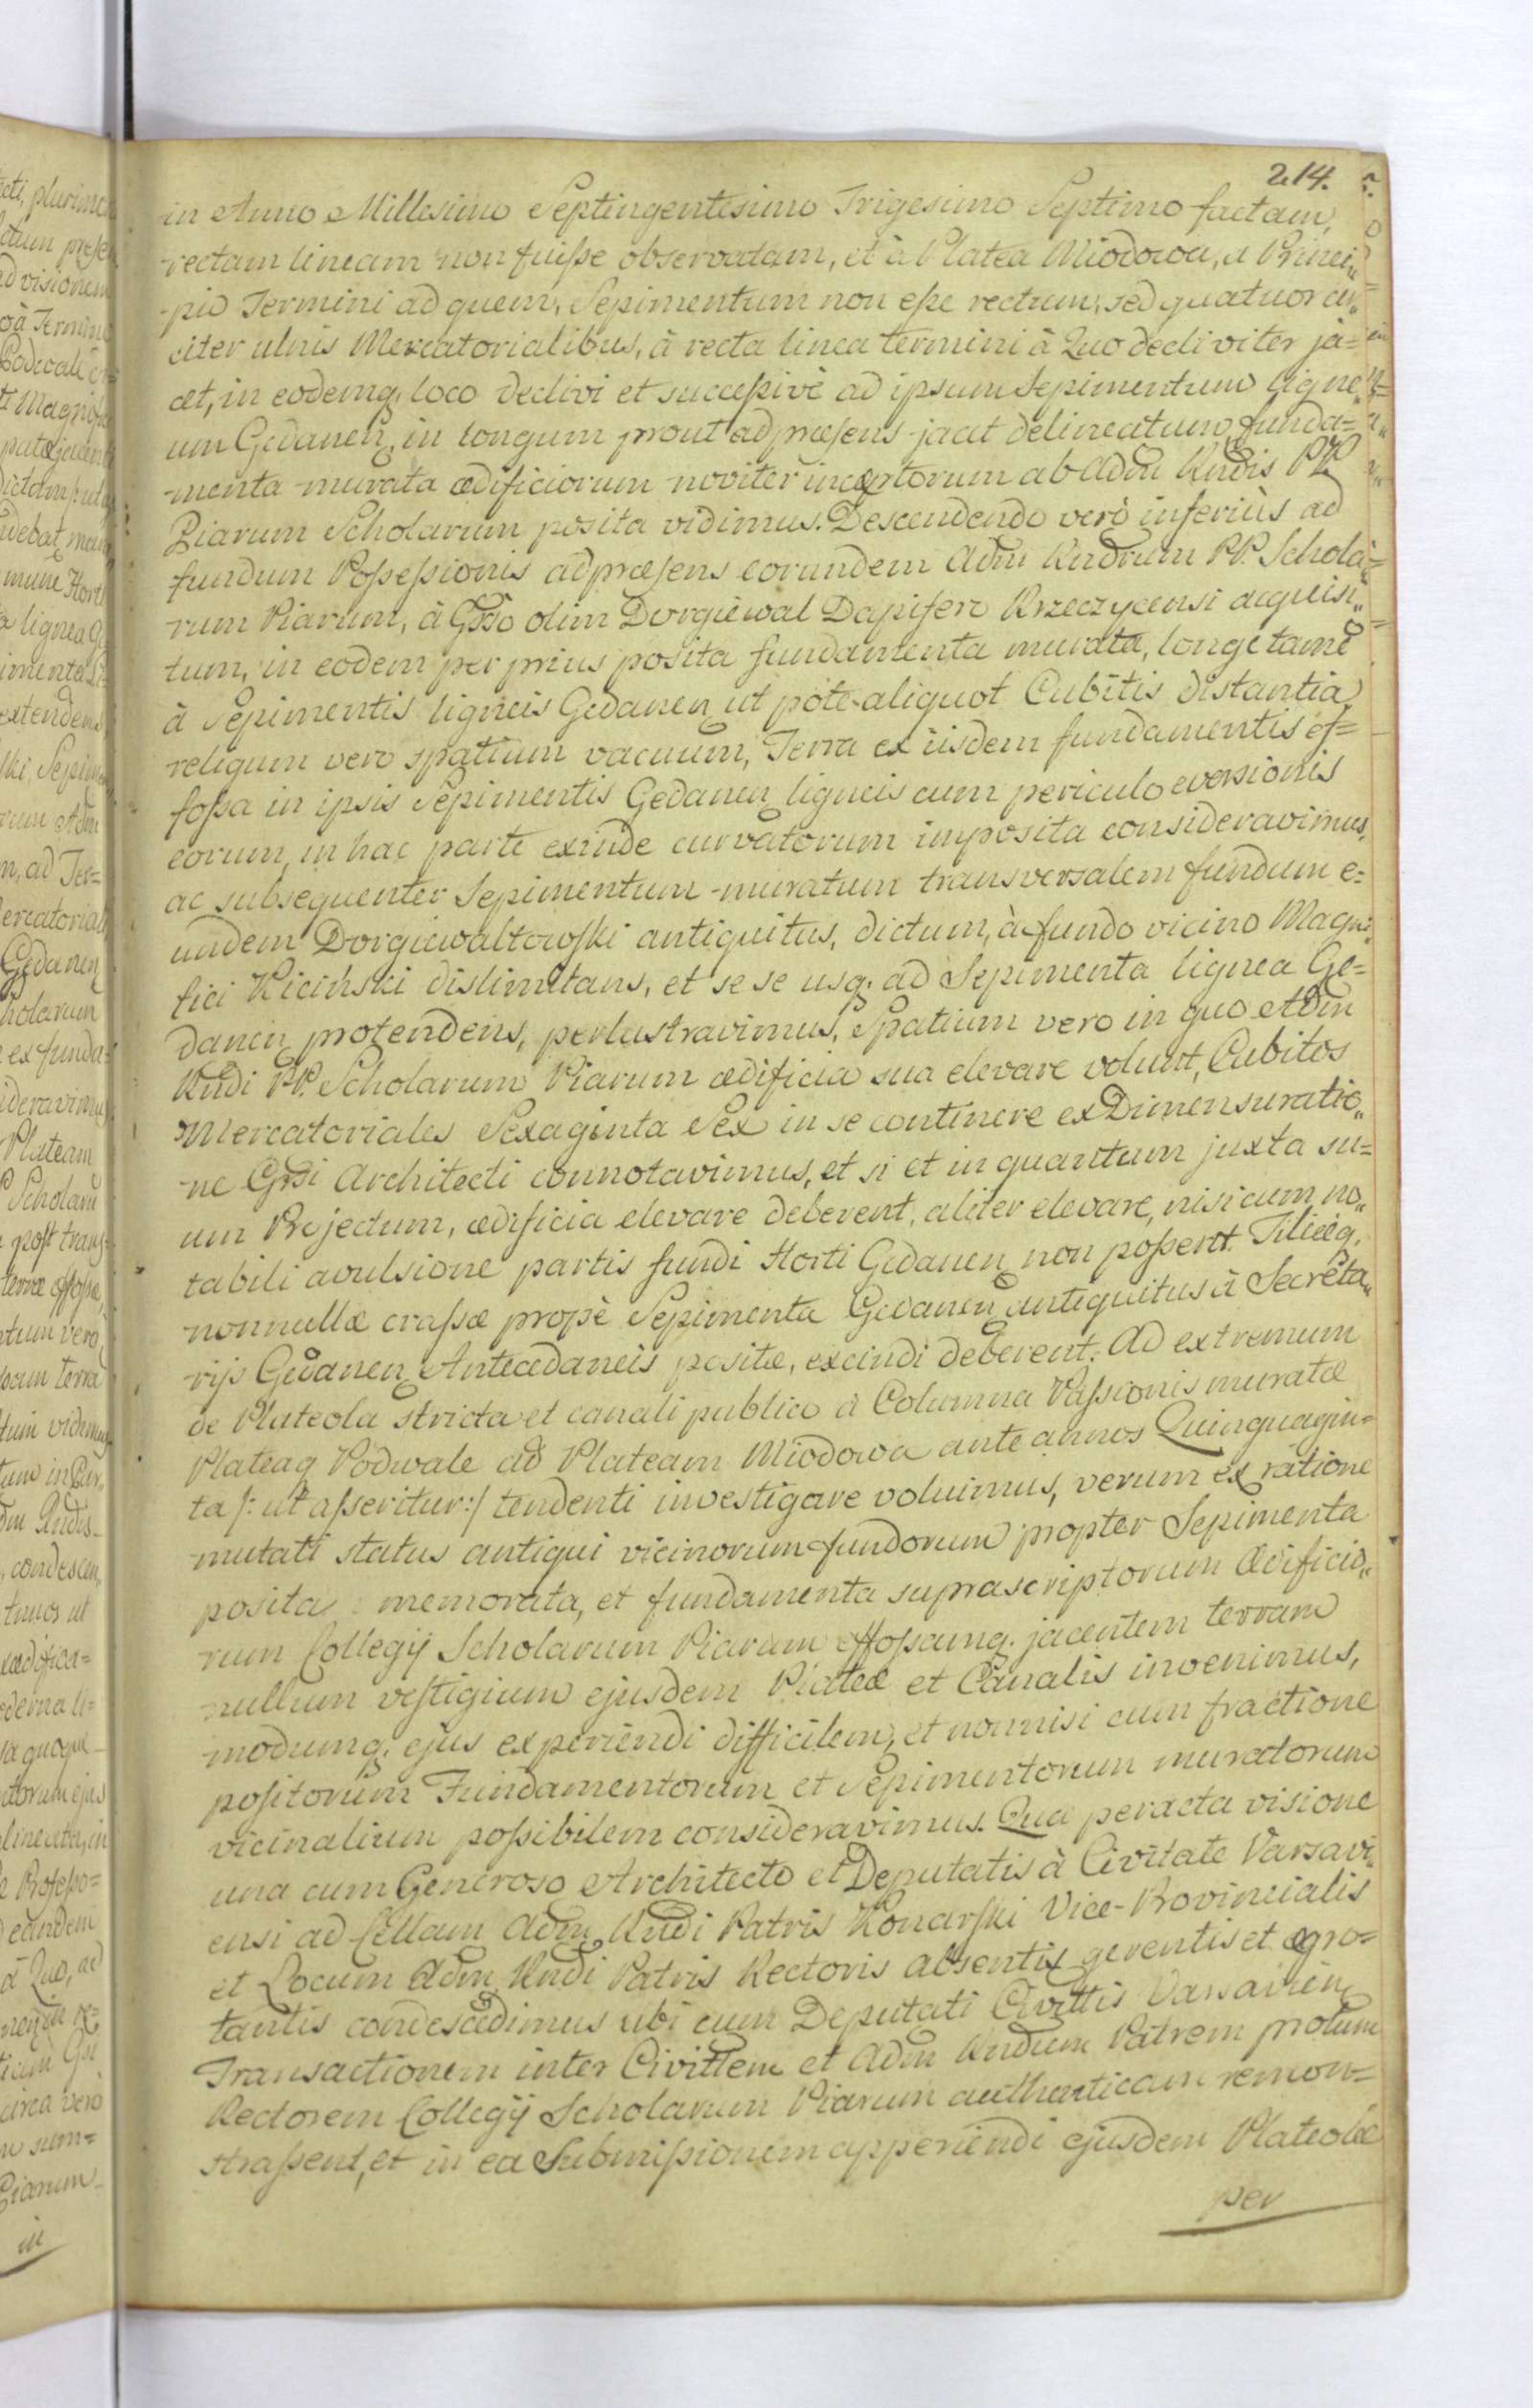 214.
in Anno Millesimo Septingentesimo Trigesimo Septimo factam,
rectam lineam non fuisse observatam, et à Platea Miodowa, a Princi„
-pio Termini ad quem, Sepimentum non esse rectum, sed quatuor cir„
citer ulnis Mercatorialibus, à recta linea termini à Quo decliviter ja=
cet, in eodemq. loco declivi et successivè ad ipsum Sepimentum ligne„
um Gedanen, in longum prout ad præsens jacet delineatum, funda=
menta murata ædificiorum noviter inceptorum ab Adm Rndis PP.
Piarum Scholarum posita vidimus. Descendendo verò inferiùs ad
fundum Possessionis ad præsens eorundem Adm Rndrum PP. Schola=
rum Piarum, à Gsso olim Dorgiewal Dapifero Krzeczycensi acquisi„
tum, in eodem per prius posita fundamenta murata, longè tamē
à Sepimentis ligneis Gedanen ut pote aliquot Cubitis distantia,
reliqum vero spatium vacuum, Terra ex iisdem fundamentis ef=
fossa in ipsis Sepimentis Gedanen ligneis cum periculo eversionis
eorum, in hac parte exinde curvatorum imposita consideravimus,
ac subsequenter Sepimentum muratum transversalem fundum e=
undem Dorgiewaltowski antiquitus, dictum, à fundo vicino Magni„
fici Kiciński dislimitans, et se se usq. ad Sepimenta lignea Ge=
danen protendens, perlustravimus, Spatium vero in quo Adm
Rndi PP. Scholarum Piarum ædificia sua elevare volunt, Cubitos
Mercatoriales Sexaginta Sex in se continere ex Dimensuratio„
ne Gsdi Architecti connotavimus, et si et in quantum juxta su=
um Projectum, ædificia elevare deberent, aliter elevare, nisi cum no„
tabili avulsione partis fundi Horti Gedanen non possent. Tiliæq.
nonnullæ crassæ propè Sepimenta Gedanen antiquitus à Secreta„
rijs Gedanen Antecedaneis positæ, excindi deberent. Ad extremum
de Plateola stricta et canali publico à Columna Passionis muratæ
Plateaq Podwale ad Plateam Miodowa ante annos Quinquagin=
ta /: ut asseritur :/ tendenti investigare voluimus, verum ex ratione
mutati status antiqui vicinorum fundorum propter Sepimenta
posita memorata, et fundamenta suprascriptorum Ædificio„
rum Collegij Scholarum Piarum effossamq. jacentem terram
nullum vestigium ejusdem Plateæ et Canalis invenimus,
modumq. ejus experiendi difficilem, et nonnisi cum fractione
positorum Fundamentorum et Sepimentorum muratorum
vicinalium possibilem consideravimus. Qua peracta visione
una cum Generoso Architecto et Deputatis à Civitate Varsavi„
ensi ad Cellam Adm Rndi Patris Konarski Vice-Provincialis
et Locum Adm Rndi Patris Rectoris absentis gerentis et ægro=
tantis condescedimus ubi cum Deputati Civittis Varsavien
Transactionem inter Civittem et Adm Rndum Patrem protunc
Rectorem Collegij Scholarum Piarum authenticam remon=
strassent, et in ea Submissionem apperiendi ejusdem Plateolæ
per